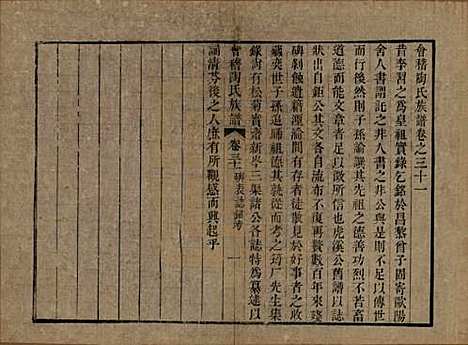 會稽陶氏族譜卷之三十一
昔李習之為皇祖實錄乞銘於昌黎曾子固寄歐陽
舍人書謂託之非人書之非公與是則不足以傳世
而行後然則子孫論譔其先祖之德善功烈不若有
道德而能文章者以發之也虎溪公舊譜以誌
狀出自鉅公其文各自流布不復再贅數百年來殘
碑剩蝕遺籍湮淪間有存者徒散見於好事家之收
藏奕世子孫追誦祖德其孰從而考之筠厂先生集
錄尚有松菊貴齋新亭三渠諸公各誌特為纂述以
誦清芬後之人庶有所觀感而興起乎
會稽陶氏族譜 卷三十一 碑表誌銘考 一